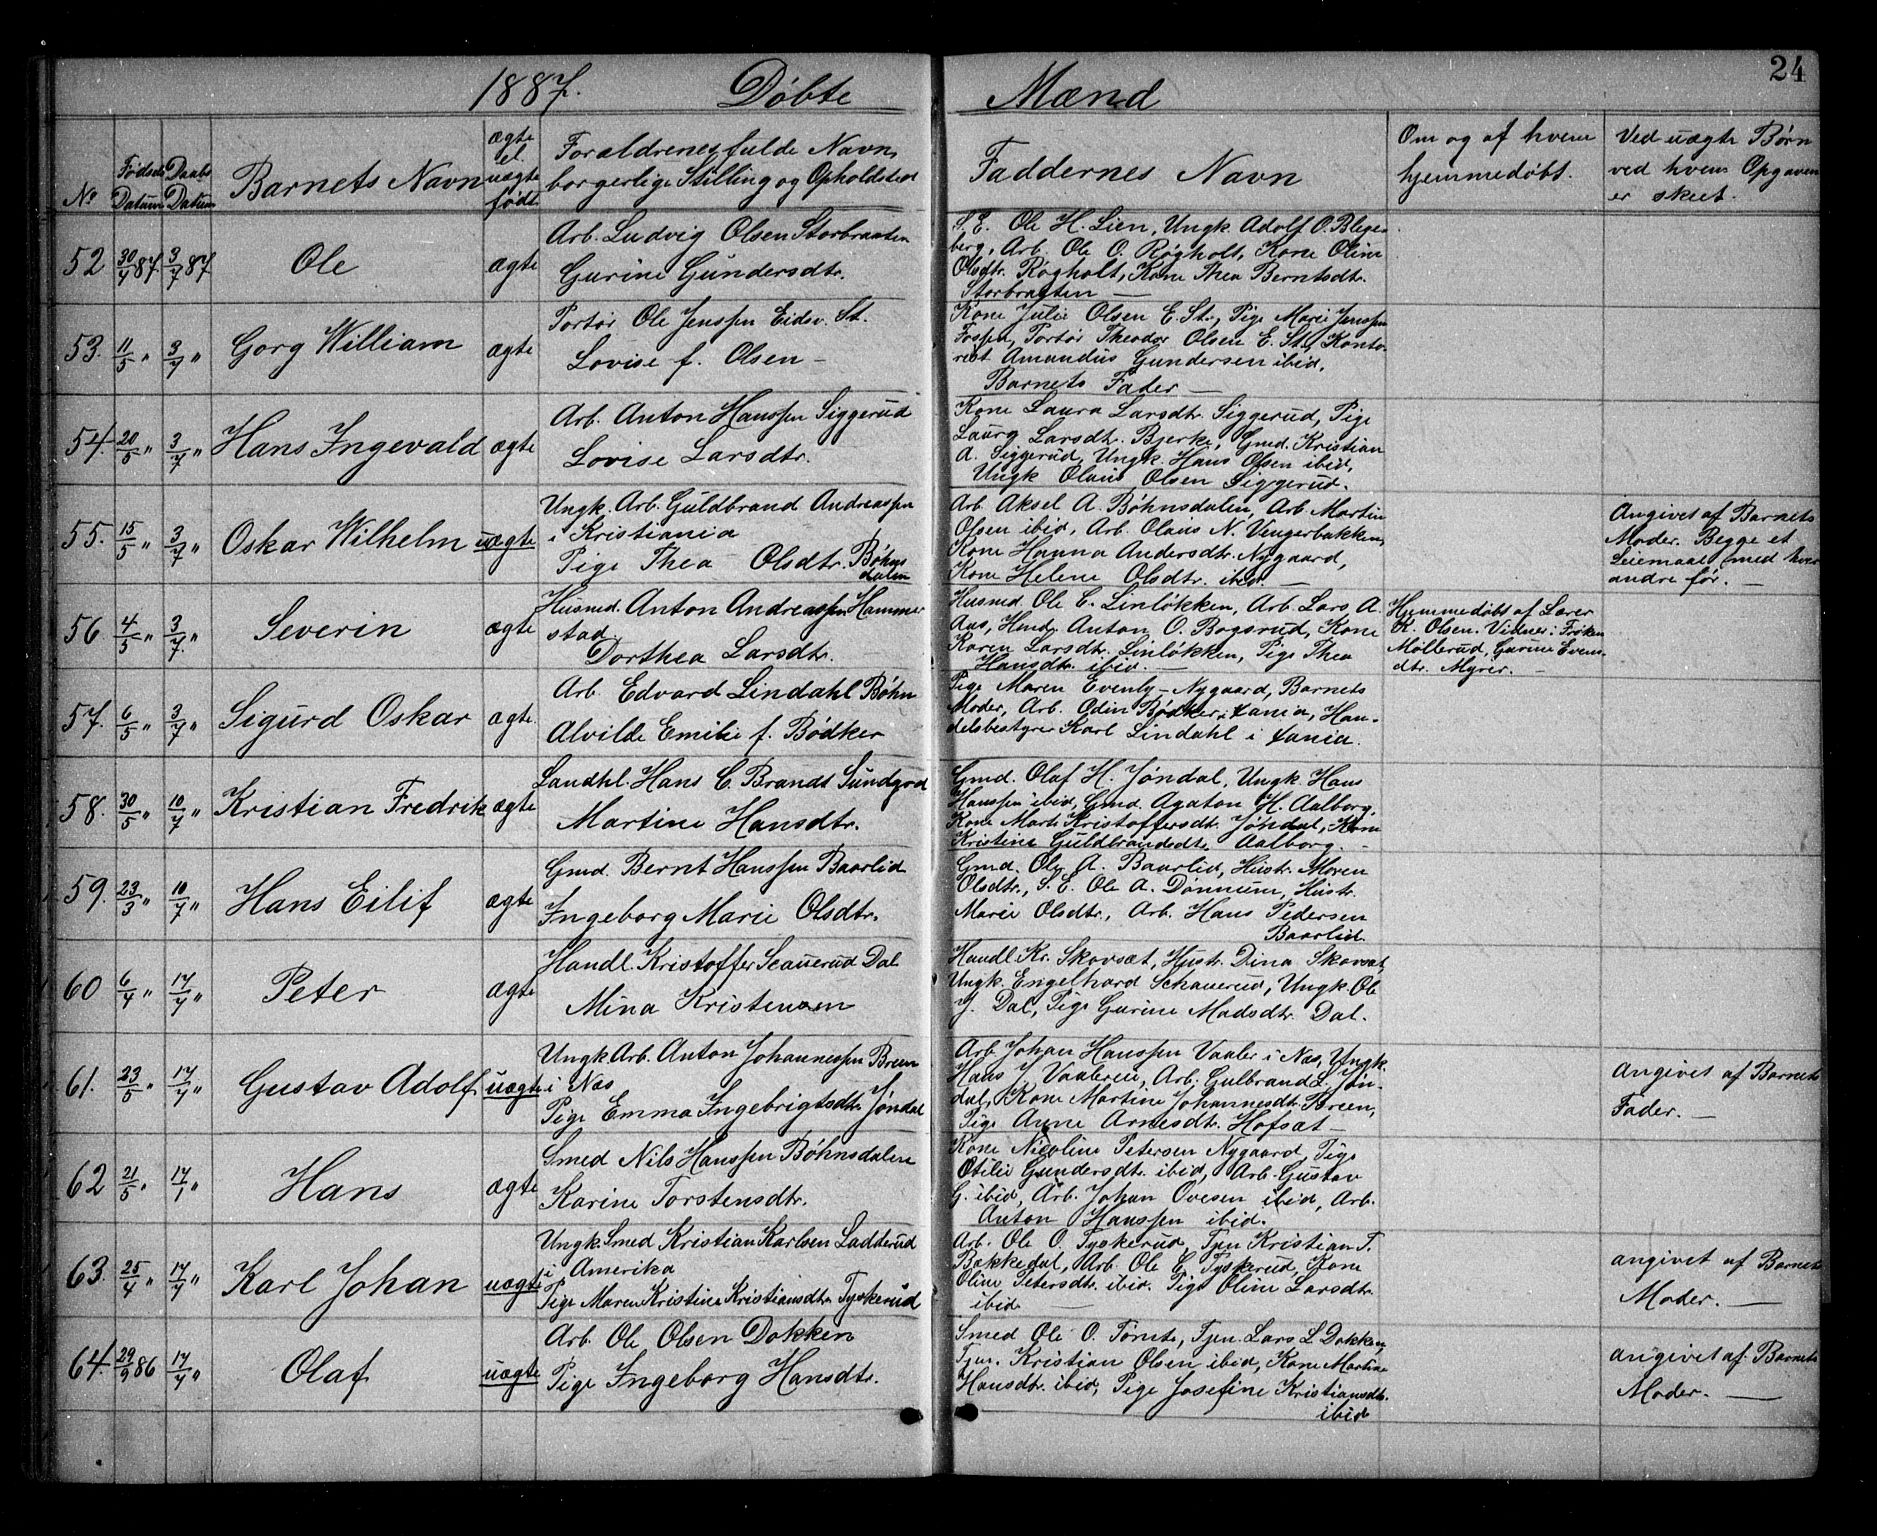 1887. Døbte
Mænd
24
No
Fødsels Datum
Daabs Datum
Barnets Navn
ægte el. uægte født
Forældrenes fulde Navn,
borgerlige Stilling og Opholdsted
Faddernes Navn
Om og af hvem
hjemmedøbt.
Ved uægte Børn
ved hvem Opgaven
er skeet.
52 30/4 87. 3/7 87 Ole ægte
Arb. Ludvig Olsen Storbraaten
Gurine Gundersdtr.
S. E. Ole H. Lien, Ungk. Adolf O. Bleges-
berg, Arb. Ole O. Røgholt, Kone Oline
Olsdtr. Røgholt, Kone Thea Berntsdtr.
Storbraaten —
53. 11/5 " 3/7 " Gorg William ægte
Portør Ole Jenssen Eidsv. St.
Lovise f. Olsen —
Kone Julie Olsen E. St., Pige Marie Jenssen
Portør Theodor Olsen E. St., Konto-
rist Amandus Gundersen ibid,
Barnets Fader —
54. 20/5 " 3/7 " Hans Ingevald ægte
Arb. Anton Hanssen Siggerud
Lovise Larsdtr.
Kone Laura Larsdtr. Siggerud, Pige
Laura Larsdtr. Bjerke, Gmd. Kristian
A. Siggerud, Ungk. Hans Olsen ibid,
Ungk Olaus Olsen Siggerud.
55. 15/5 " 3/7 " Oskar Wilhelm uægte
Ungk. Arb. Guldbrand Andreassen
i Kristiania
Pige Thea Olsdtr. Bøhns
dalen
Arb. Aksel A. Bøhnsdalen, Arb Martin
Olsen ibid, Arb. Olaus N. Vengerbakken,
Kone Hanna Andersdtr. Nygaard,
Kone Helene Olsdtr. ibid —
Angivet af Barnets
Moder. Begge et
Leiemaal med hver
andre før. —
56 4/5 " 3/7. " Severin ægte
Husmd. Anton Andreassen Hammer
stad
Dorthea Larsdtr.
Husmd. Ole C. Linløkken, Arb. Lars A.
Aas, Hmd. Anton O. Bogsrud, Kone
Karen Larsdtr. Linløkken, Pige Thea
Hansdtr. ibid. —
Hjemmedøbt af Lærer
K. Olsen. Vidner: Frøken
Møllerud, Gurine Evens-
dtr. Myrer. —
57. 6/5 " 3/7 " Sigurd Oskar ægte.
Arb. Edvard Lindahl Bøhn
Alvilde Emilie f. Bødker
Pige Maren Evenby — Nygaard, Barnets
Moder, Arb. Odin Bødker i Xania, Han-
delsbestyrer Karl Lindahl i Xania.
58. 30/5 " 10/7 " Kristian Fredrik ægte
Landhl. Hans C. Brands Sundgrd
Martine Hansdtr.
Gmd. Olaf H. Jøndal, Ungk. Hans
Hanssen ibid, Gmd. Agaton H. Aalborg,
Kone Marte Kristoffersdtr. Jøndal, Kone
Kristine Guldbrandsdtr. Aalborg. —
59. 23/3 " 10/7 " Hans Eilif ægte
Gmd. Bernt Hanssen Baarlid
Ingeborg Marie Olsdtr.
Gmd. Ole A. Baarlid, Hustr. Maren
Olsdtr., S. E. Ole A. Dønnum, Hustr.
Marie Olsdtr., Arb. Hans Pedersen
Baarlid.
60 6/4 " 17/7 " Peter ægte
Handl. Kristoffer Scauerud Dal
Mina Kristensen
Handl. Kr. Skovsæt, Hustr. Dina Skovsæt,
Ungk. Engelhard Schauerud, Ungk. Ole
J. Dal, Pige Gurine Madsdtr. Dal.
61. 23/5 " 17/7 " Gustav Adolf uægte
Ungk Arb. Anton Johannessen Breen
i Næs
Pige Emma Ingebrigtsdtr. Jøndal
Arb. Johan Hanssen Vaaler i Næs, Ungk.
Hans J. Vaaleren, Arb. Gulbrand L. Jøn-
dal, Kone Martine Johannesdtr. Breen,
Pige Anne Arnesdtr. Hofsæt —
Angivet af Barnets
Fader. —
62 21/5 " 17/1 " Hans ægte
Smed Nils Hanssen Bøhnsdalen
Karine Torstensdtr.
Kone Nicoline Petersen Nygaard, Pige
Otilie Gundersdtr. ibid, Arb. Gustav
G. ibid, Arb. Johan Ovesen ibid, Arb.
Anton Hanssen ibid.
63. 25/4 " 17/7 " Karl Johan uægte
Ungk. Smed Kristian Karlsen Ladderud
i Amerika
Pige Maren Kristine Kristiansdtr. Tyskerud
Arb. Ole O. Tyskerud, Tjen. Kristian T.
Bakkedal, Arb. Ole E. Tyskerud, Kone
Oline Petersdtr. ibid. Pige Oline Larsdtr.
ibid —
angivet af Barnets
Moder. —
64. 29/9 86 17/7 " Olaf uægte
Arb. Ole Olsen Dokken
Pige Ingeborg Hansdtr.
Smed Ole O. Tømte, Tjen. Lars L. Dokken,
Tjen. Kristian Olsen ibid, Kone Martine
Hansdtr. ibid, Pige Josefine Kristiansdtr.
ibid
angivet af Barnets
Moder. —